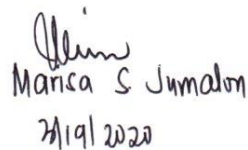 Marisa S. Jumalon
3/19/2020